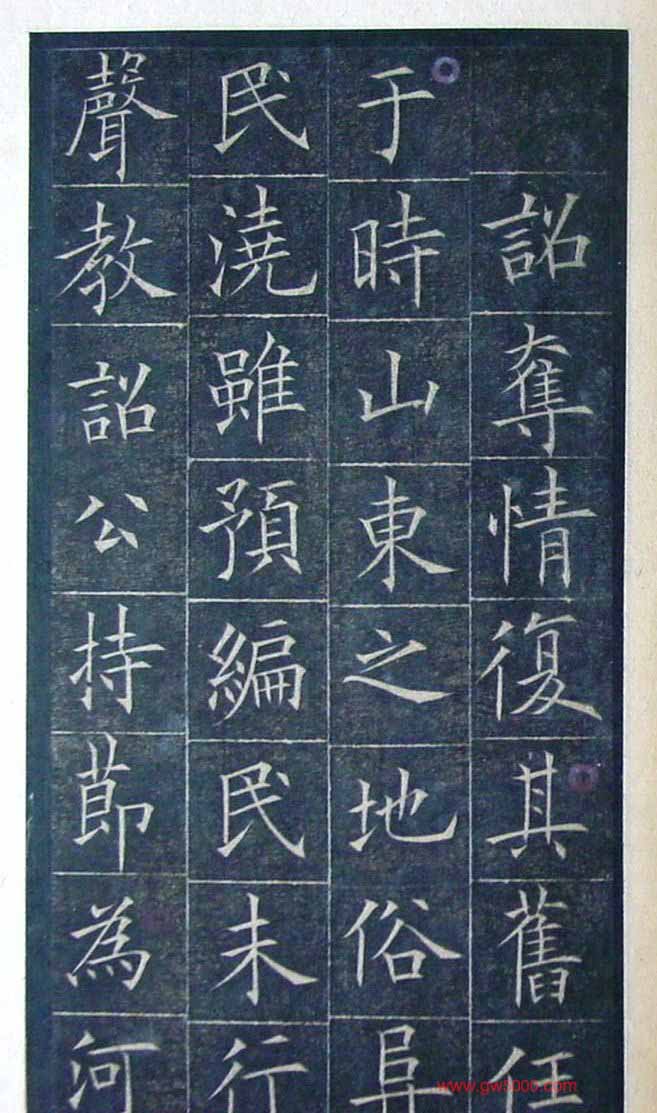 詔奪情復其舊任
于時山東之地俗阜
民澆雖預編民未行
聲教詔公持莭為河
www.gw5000.com